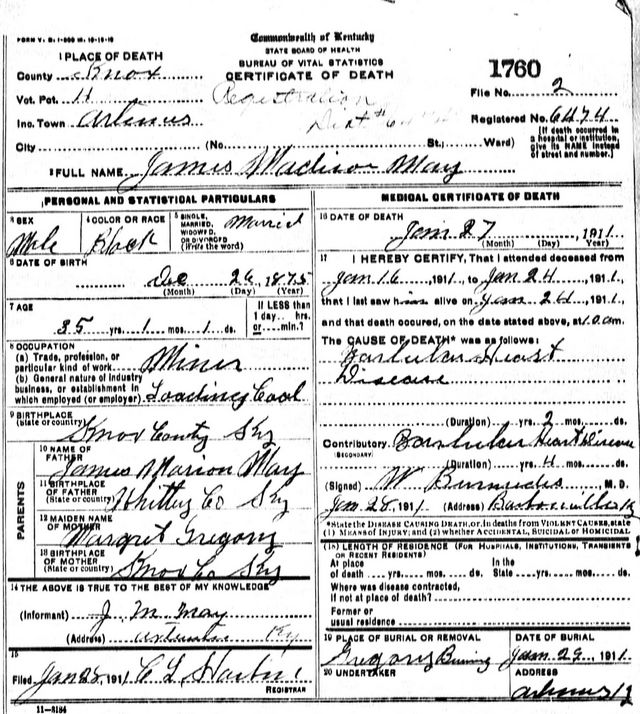 FORM V. S. 1-500 M. 10-15-10
Commonwealth of Kentucky
STATE BOARD OF HEALTH
BUREAU OF VITAL STATISTICS
CERTIFICATE OF DEATH
1760
1 PLACE OF DEATH
County Knox
Vot. Pct. 11
Inc. Town Artemus
Registration
Dist #
File No. 2
Registered No. 6474
[If death occurred in a hospital or institution, give its NAME instead of street and number.]
City (No. St.; Ward)
2 FULL NAME James Madison May
PERSONAL AND STATISTICAL PARTICULARS
3 SEX Male
4 COLOR OR RACE Black
5 SINGLE, MARRIED, WIDOWED, OR DIVORCED (Write the word) Married
6 DATE OF BIRTH
Dec 26, 1875
(Month) (Day) (Year)
7 AGE
35 yrs. 1 mos. 1 ds.
If LESS than 1 day .... hrs. or .... min.?
8 OCCUPATION
(a) Trade, profession, or particular kind of work Miner
(b) General nature of industry business, or establishment in which employed (or employer) Loading Coal
9 BIRTHPLACE
(State or country) Knox County Ky
PARENTS
10 NAME OF FATHER
James Marion May
11 BIRTHPLACE OF FATHER
(State or country) Whitley Co Ky
12 MAIDEN NAME OF MOTHER
Margret Gregory
13 BIRTHPLACE OF MOTHER
(State or country) Knox Co Ky
14 THE ABOVE IS TRUE TO THE BEST OF MY KNOWLEDGE
(Informant) J. M. May
(Address) Ky
15
Filed Jan 28, 1911 C L
REGISTRAR
11-3184
MEDICAL CERTIFICATE OF DEATH
16 DATE OF DEATH
Jan 27, 1911
(Month) (Day) (Year)
17 I HEREBY CERTIFY, That I attended deceased from
Jan 16, 1911, to Jan 24, 1911,
that I last saw him alive on Jan 24, 1911,
and that death occurred, on the date stated above, at 10 a.m.
The CAUSE OF DEATH* was as follows:
Heart
Disease
(Duration) yrs. 2 mos. ds.
Contributory Heart Disease
(SECONDARY)
(Duration) yrs. 4 mos. ds.
(Signed) W M. D.
Jan 28, 1911 (Address) Barbourville Ky
*State the DISEASE CAUSING DEATH, or, in deaths from VIOLENT CAUSES, state
(1) MEANS of INJURY; and (2) whether ACCIDENTAL, SUICIDAL or HOMICIDAL
(18) LENGTH OF RESIDENCE (FOR HOSPITALS, INSTITUTIONS, TRANSIENTS OR RECENT RESIDENTS)
At place of death yrs. mos. ds. In the State yrs. mos. ds.
Where was disease contracted,
if not at place of death?
Former or
usual residence
19 PLACE OF BURIAL OR REMOVAL
Gregory
DATE OF BURIAL
Jan 29, 1911
20 UNDERTAKER
ADDRESS
Artemus Ky